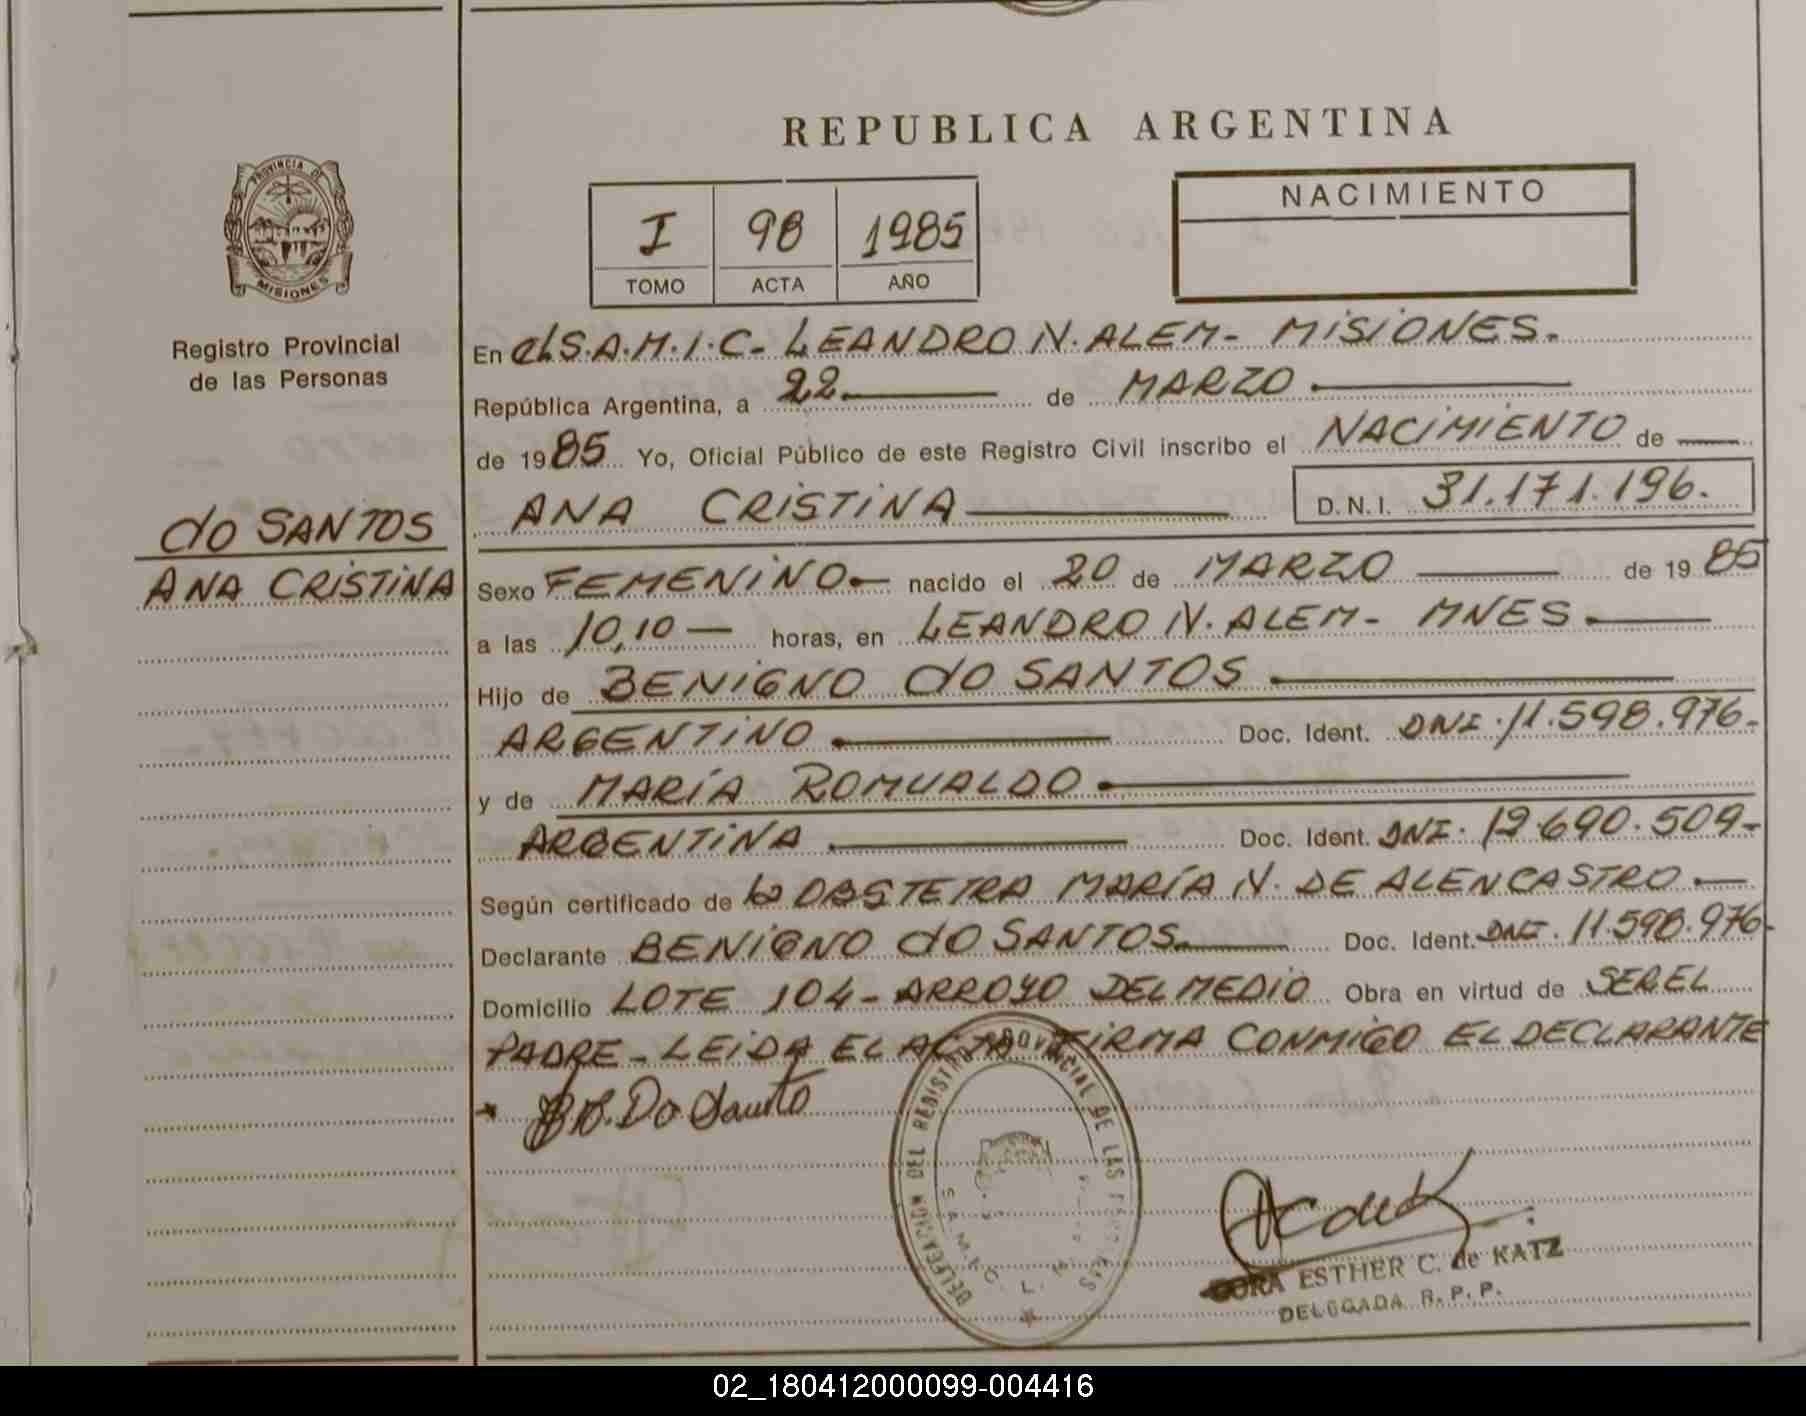 REPUBLICA ARGENTINA
PROVINCIA DE
MISIONES
Registro Provincial
de las Personas
I 98 1985
TOMO ACTA AÑO
NACIMIENTO
do SANTOS
ANA CRISTINA
En el S.A.M.I.C. LEANDRO N. ALEM - MISIONES.
República Argentina, a 22 de MARZO
de 1985 Yo, Oficial Público de este Registro Civil inscribo el NACIMIENTO de
ANA CRISTINA D.N.I. 31.171.196.
Sexo FEMENINO nacido el 20 de MARZO de 1985
a las 10,10 horas, en LEANDRO N. ALEM - MNES
Hijo de BENIGNO do SANTOS
ARGENTINO Doc. Ident. DNI. 11.598.976-
y de MARÍA ROMUALDO
ARGENTINA Doc. Ident. DNI. 12.690.509-
Según certificado de la OBSTETRA MARÍA N. DE ALENCASTRO
Declarante BENIGNO do SANTOS Doc. Ident. DNI. 11.598.976-
Domicilio LOTE 104 - ARROYO DEL MEDIO Obra en virtud de SER EL
PADRE - LEIDA EL ACTA FIRMA CONMIGO EL DECLARANTE
Do Santo
DELEGACION DEL REGISTRO PROVINCIAL DE LAS
S.A.M.I.C. L.
DORA ESTHER C. de KATZ
DELEGADA R. P. P.
02_180412000099-004416